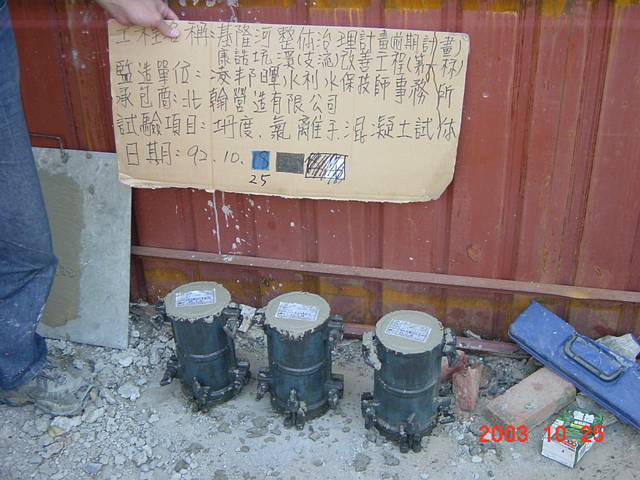 工程名稱:基隆河整体治理計畫(前期計畫)
康誥坑溪(支流)改善工程(第 標)
監造單位: 邦暉水利水保技師事務所
承包商:北翰營造有限公司
試驗項目:坍度.氯離子.混凝土試体
日期:92.10.
25
2003 10 25